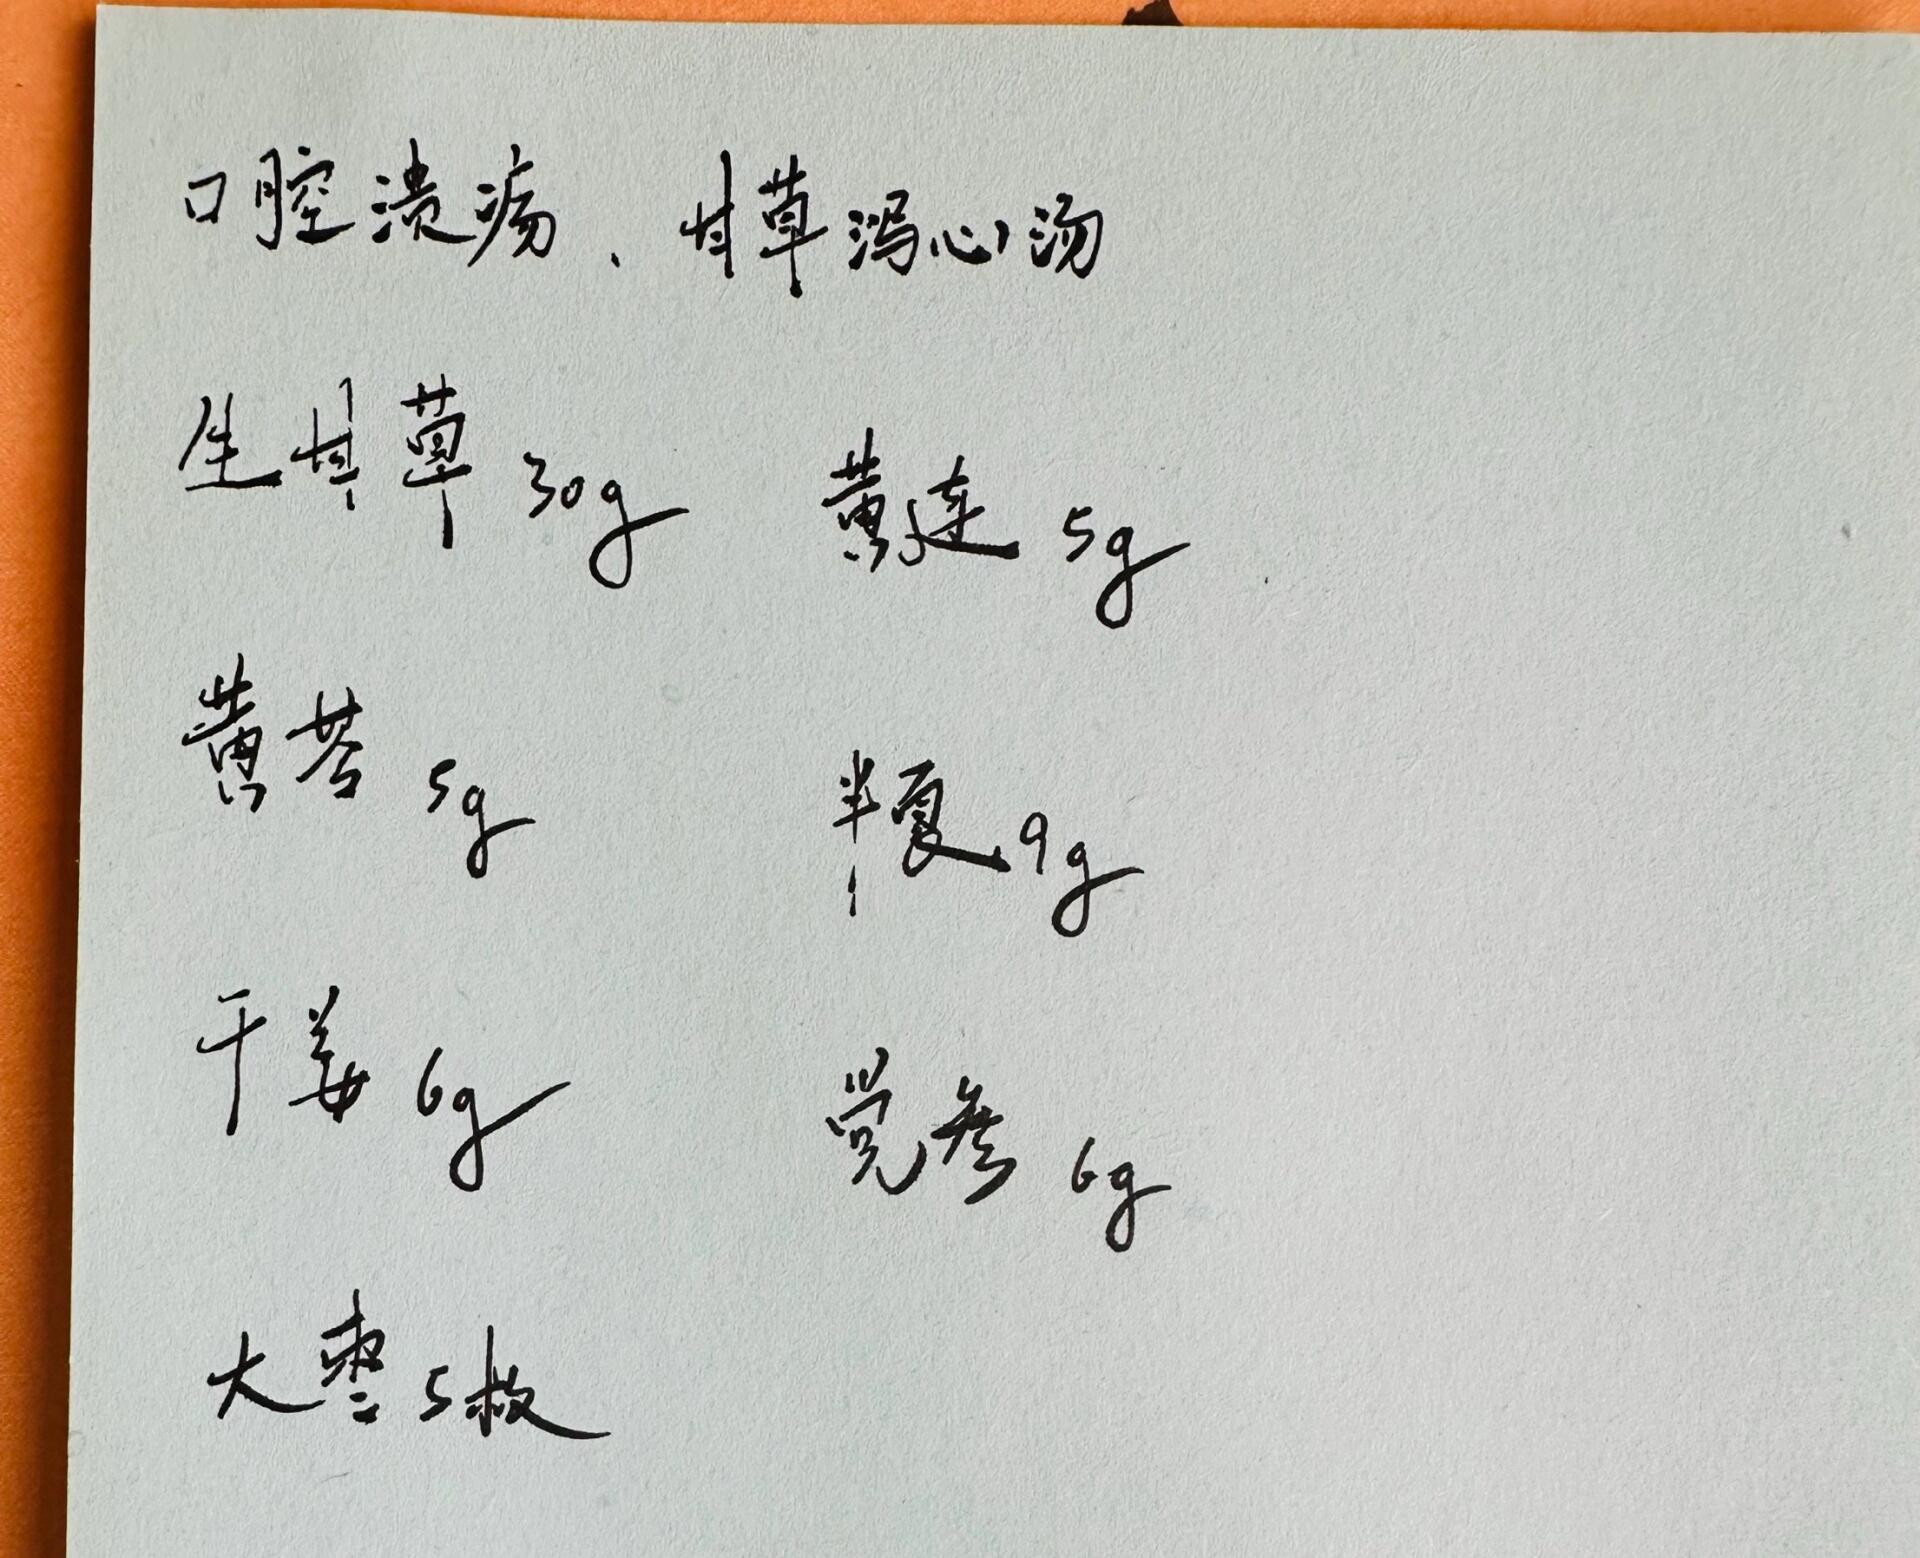 口腔溃疡、甘草泻心汤
生甘草 30g 黄连 5g
黄芩 5g 半夏 9g
干姜 6g 党参 6g
大枣 5枚